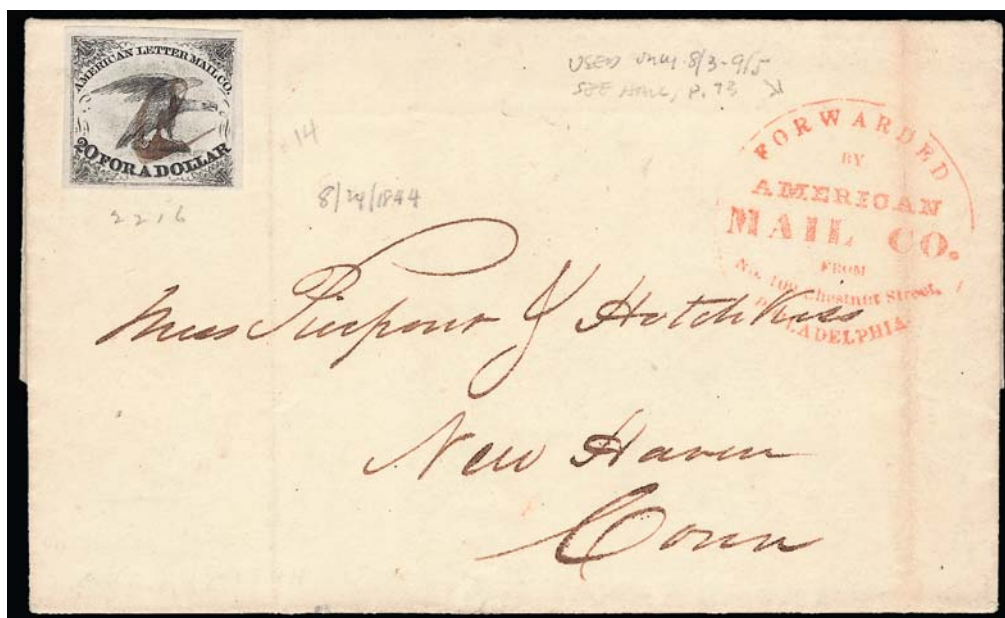 AMERICAN LETTER MAIL CO.
20 FOR A DOLLAR
USED only 8/3-9/5
SEE HALL, P. 73
14
2216
8/24/1844
FORWARDED
BY
AMERICAN
MAIL CO.
FROM
No. 109 Chestnut Street,
PHILADELPHIA
Mess Pierpont & Hotchkiss
New Haven
Conn